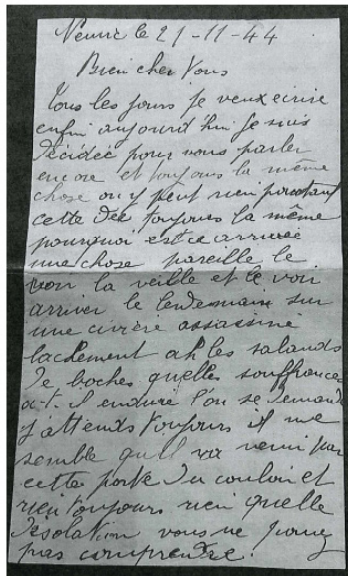 Neuvic le 21-11-44
Bien cher Vous
Tous les jours je veux ecrire
enfin aujourd'hui je suis
décidée pour vous parler
encore et toujours la même
chose on y peut rien pourtant
cette idée toujours la même
pourquoi est ce arrivée
une chose pareille le
voir la veille et le voir
arriver le lendemain sur
une civière assassiné
lachement ah les salauds
de boches quelles souffrances
a-t-il enduré l'on se demande
j'attends toujours il me
semble qu'il va venir par
cette porte du couloir et
rien toujours rien quelle
désolation vous ne pouvez
pas comprendre.